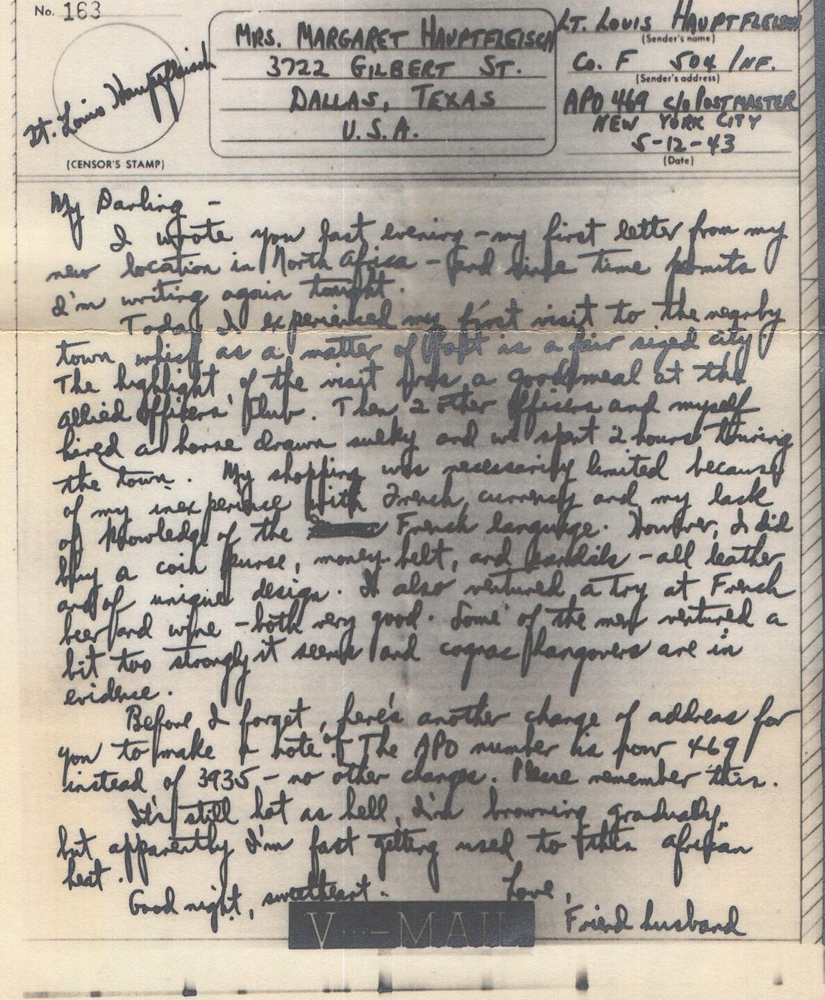 No. 163
Lt. Louis Hauptfleisch
(CENSOR'S STAMP)
MRS. MARGARET HAUPTFLEISCH
3722 GILBERT ST.
DALLAS, TEXAS
U.S.A.
LT. LOUIS HAUPTFLEISCH
(Sender's name)
CO. F 504 INF.
(Sender's address)
APO 469 c/o POSTMASTER
NEW YORK CITY
5-12-43
(Date)
My Darling -
I wrote you last evening - my first letter from my
new location in North Africa - and since time permits
I'm writing again tonight.
Today I experienced my first visit to the nearby
town which as a matter of fact is a fair sized city.
The highlight of the visit was a good meal at the
Allied Officers' Club. Then 2 other officers and myself
hired a horse drawn sulky and we spent 2 hours touring
the town. My shopping was necessarily limited because
of my inexperience with French currency and my lack
of knowledge of the French language. However, I did
buy a coin purse, money belt, and sandals - all leather
and of unique design. I also ventured a try at French
beer and wine - both very good. Some of the men ventured a
bit too strongly it seems and cognac hangovers are in
evidence.
Before I forget, here's another change of address for
you to make a note of. The APO number is now 469
instead of 3935 - no other changes. Please remember this.
It's still hot as hell, I'm browning gradually,
but apparently I'm fast getting used to this African
heat.
Good night, sweetheart.
Love,
Friend husband
V···—MAIL